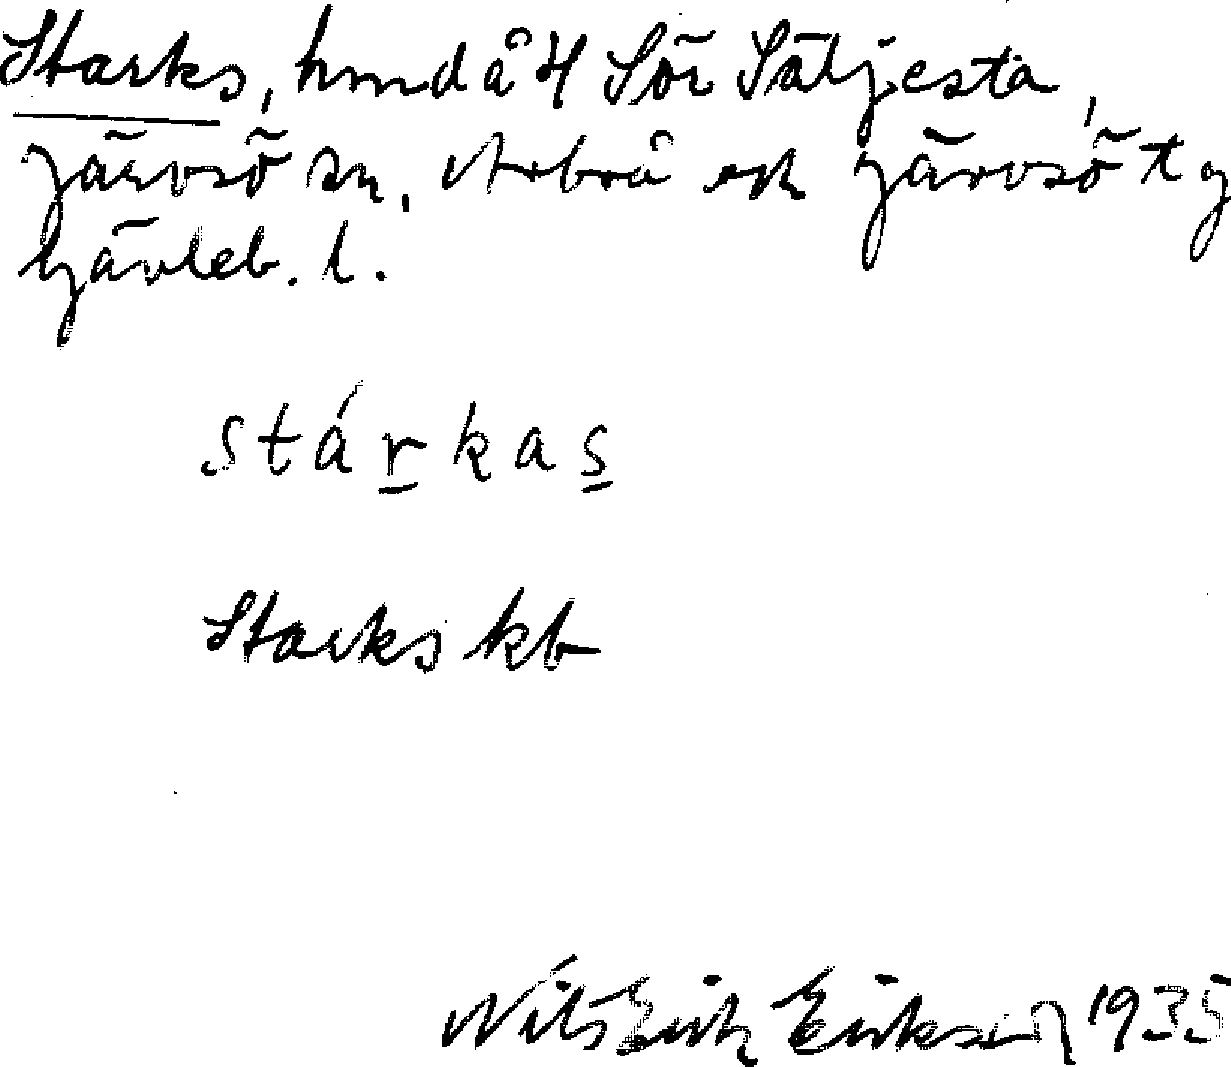 Starks, hmd å 4 Sör Säljesta,
Järvsö sn, Arbrå och Järvsö tg
Gävleb. l.
stárkas
Starks kb
Nils Erik Eriksson 1935